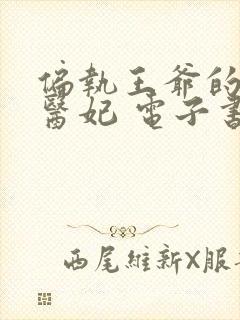 偏執王爺的
醫妃 電子書
西尾維新X服